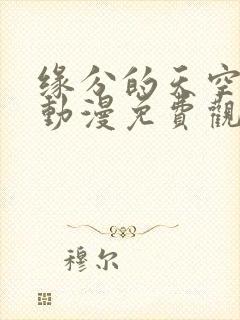 缘分的天空
動漫免費觀
穆尔